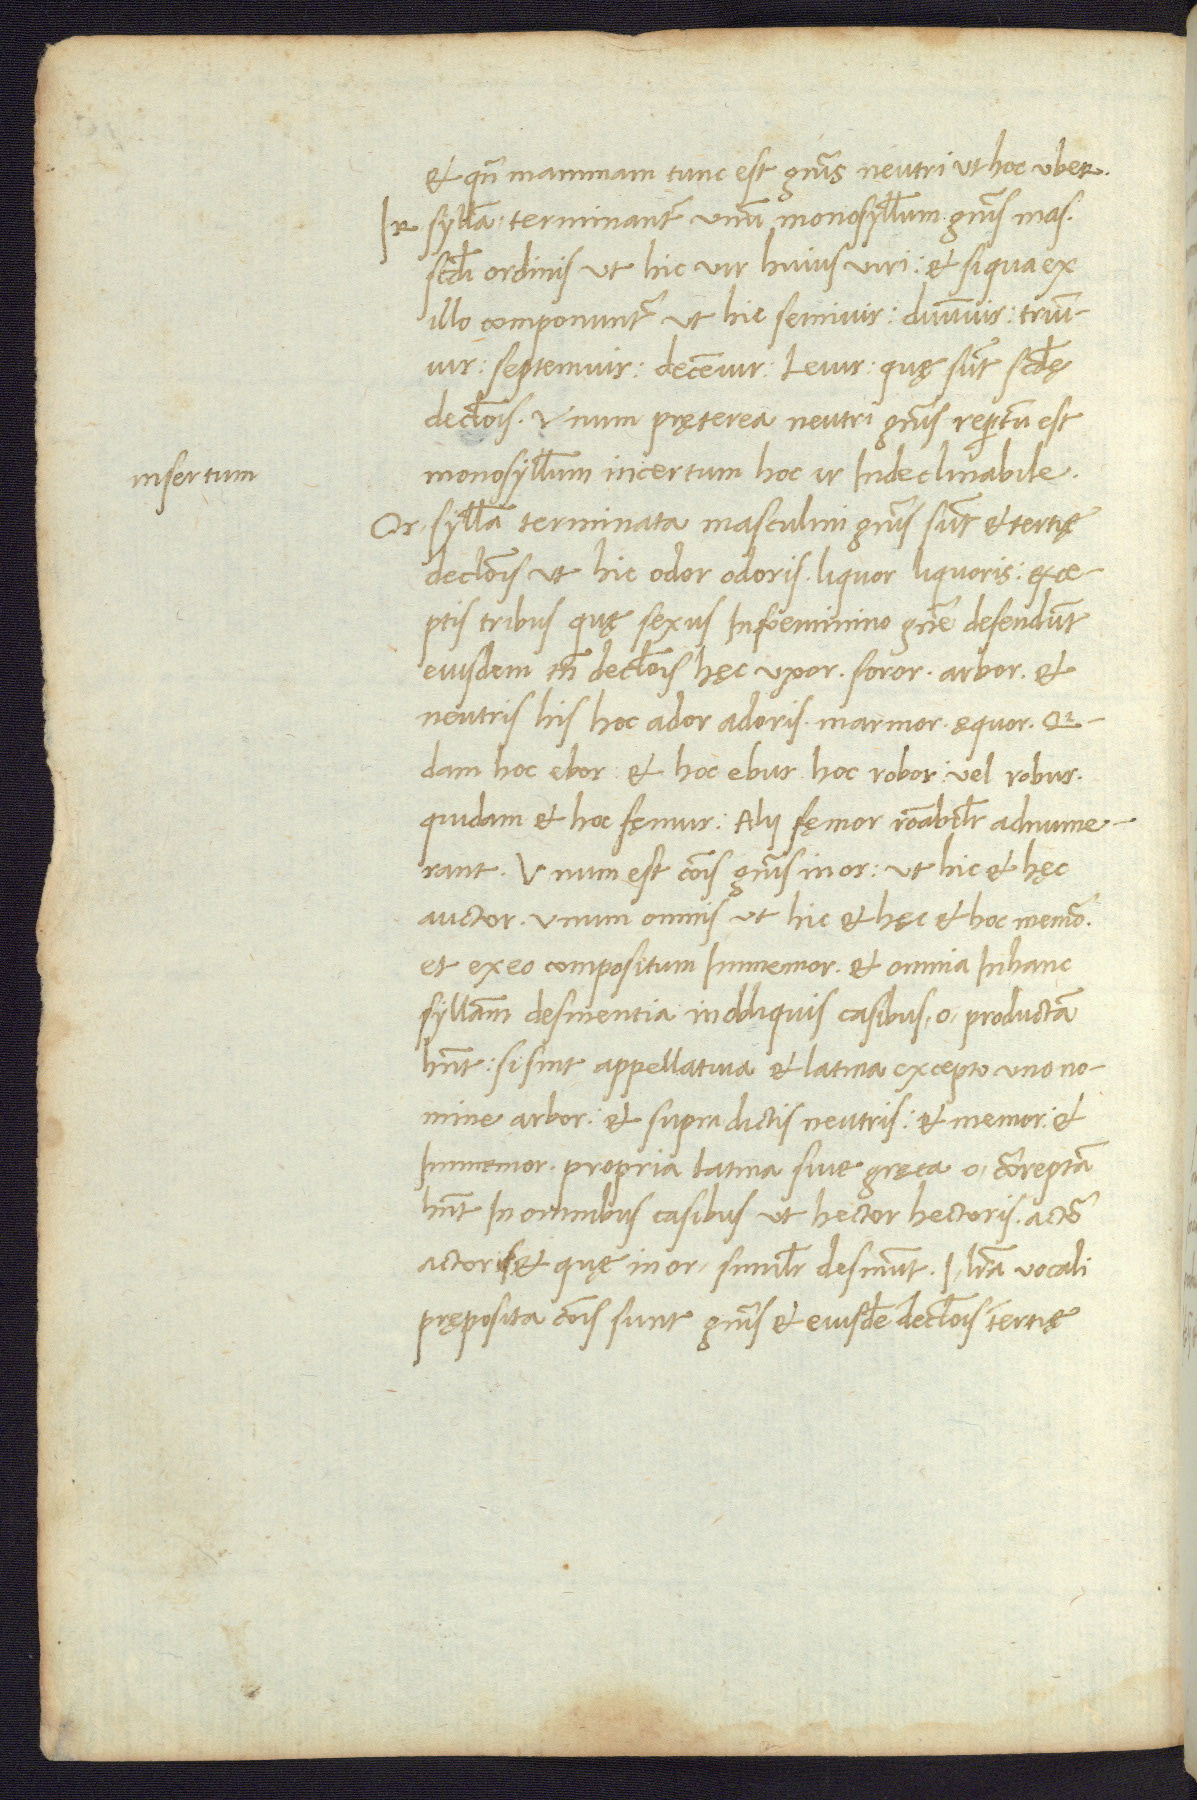 & qn̄ mammam tunc est gn̄is neutri ut hoc uber.
Ir syllā: terminant̄ unū monosyll̄um gn̄is mas.
scd̄i ordinis ut hic uir huius uiri: & siqua ex
illo componunt̄ ut hic semiuir: duūuir: triū-
uir: septemuir: decēuir: Leuir: quę sūt scd̄ę
decl̄ois. Vnum pręterea neutri gn̄is reptū est
monosyll̄um incertum hoc ir Indeclinabile.
insertum
Or, syllā terminata masculini gn̄is sūt & tertię
decl̄ois ut hic odor odoris. liquor liquoris: exce-
ptis tribus quę sexus Infoeminino gn̄e defendūt
eiusdem tn̄ decl̄ois hęc uxor. soror. arbor. &
neutris his hoc ador adoris. marmor. ęquor. Q-
dam hoc ebor & hoc ebur hoc robor: uel robur.
quidam & hoc fęmur: Alij fęmor rōabilr̄ adnume-
rant. Vnum est cōis gn̄is in or: ut hic & hęc
auctor. unum omnis ut hic & hęc & hoc memō.
et exeo compositum Immemor. & omnia Inhanc
syllām desinentia inobliquis casibus, o, productā
hn̄t: si sint appellatiua & latina excepto uno no-
mine arbor: & supra dictis neutris: & memor: &
Immemor. propria latina siue gręca o, cōreptā
hn̄t In omnibus casibus ut hector hectoris. actō
actoris & quę in or, similr̄ desinūt. I, lr̄a uocali
pręposita cōis sunt gn̄is & eiusdē decl̄ois tertię